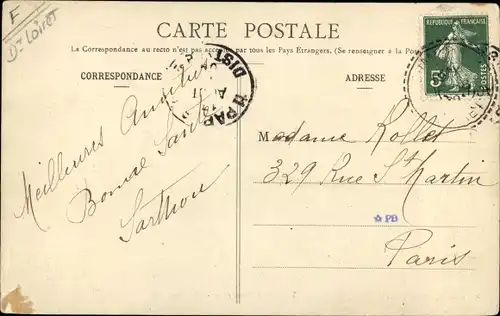 F
Dt Loiret
CARTE POSTALE
La Correspondance au recto n'est pas acceptée par tous les Pays Etrangers. (Se renseigner à la Poste
CORRESPONDANCE
ADRESSE
REPUBLIQUE FRANÇAISE
5
POSTES
DIST
PAR
Meilleures Amitiés
Bonne Santé
Madame Rollet
329 Rue St Martin
PB
Paris